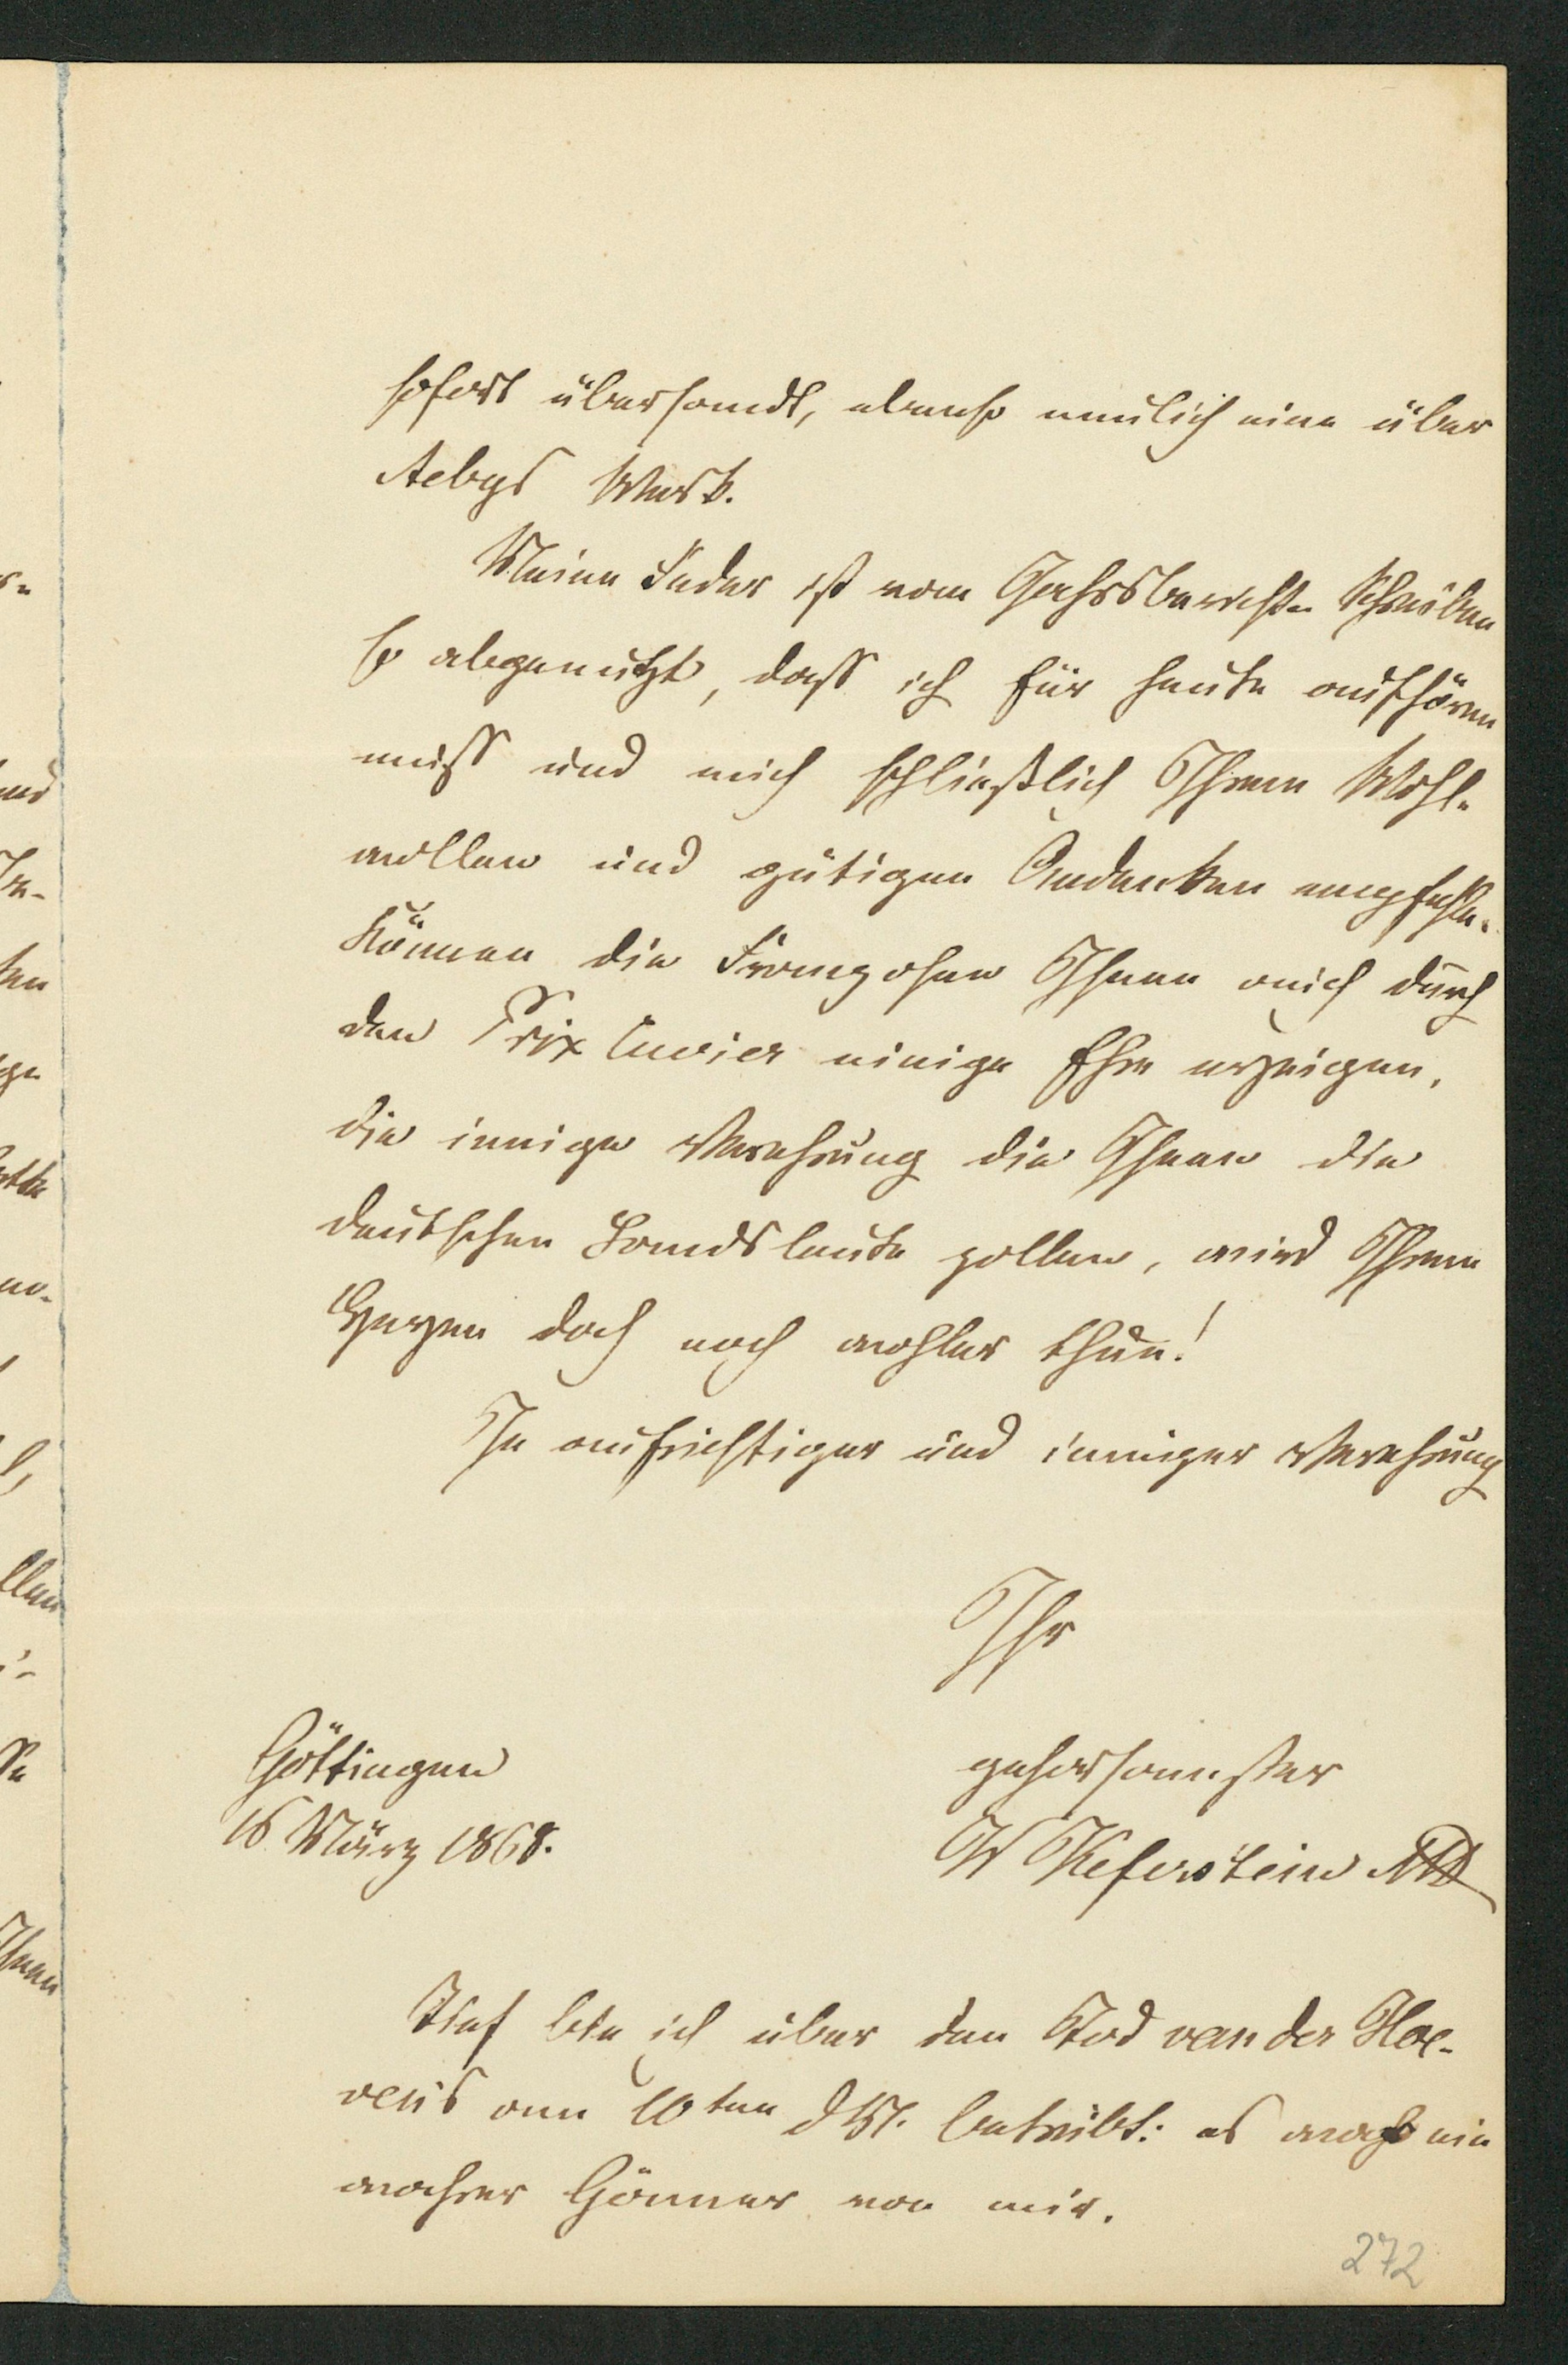 sofort übersandt, ebenso neulich eine über
Aebys Werk.
Meine Feder ist vom Jahresberichte Schreiben
so abgenutzt, dass ich für heute aufhören
muss und mich schließlich Ihrem Wohl-
wollen und gütigen Andenken empfehle.
Können die Franzosen Ihnen auch durch
den Prix Cuvier einige Ehre erzeigen,
die innige Verehrung die Ihnen die
deutschen Landsleute zollen, wird Ihrem
Herzen doch noch wohler thun!
In aufrichtiger und inniger Verehrung
Ihr
Göttingen
gehorsamster
16 März 1868.
W Keferstein MD
Tief bin ich über den Tod van der Hoe-
vens am 10ten d M. betrübt: es war ein
wahrer Gönner von mir.
272